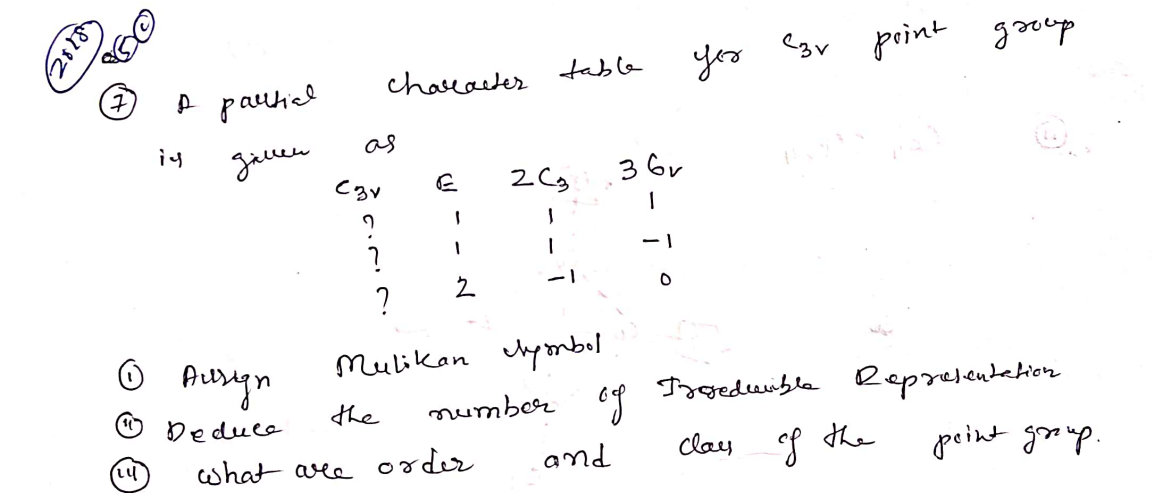 2018 Q5(c)
(7) A partial character table for C3v point group
is given as
C3v E 2C3 3σv
? 1 1 1
? 1 1 -1
? 2 -1 0
(i) Assign Mulikan symbol
(ii) Deduce the number of Irreducible Representation
(iii) What are order and class of the point group.